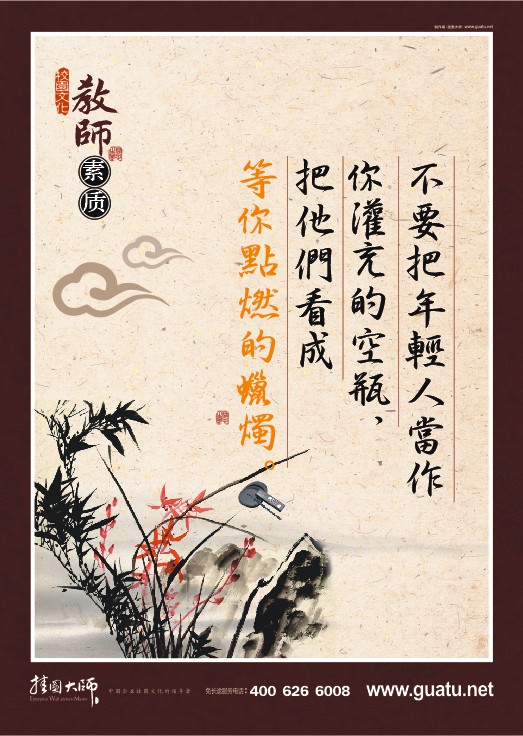 www.guatu.net
校園文化
教師
素质
不要把年輕人當作
你灌充的空瓶，
把他們看成
等你點燃的蠟燭。
挂图大师
中国企业挂图文化的领导者
免长途服务电话：400 626 6008
www.guatu.net